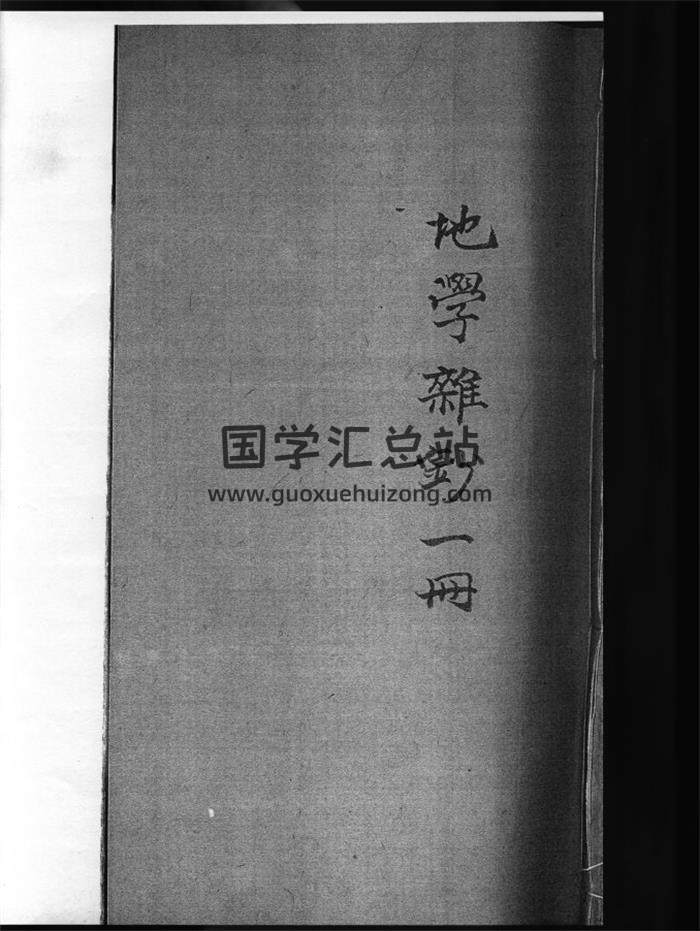 地學雜一冊
国学汇总站
www.guoxuehuizong.com